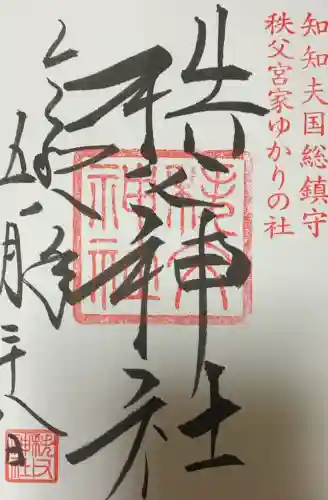 知知夫国総鎮守
秩父宮家ゆかりの社
秩父神社
秩父神社
令和
年
五月二十八日